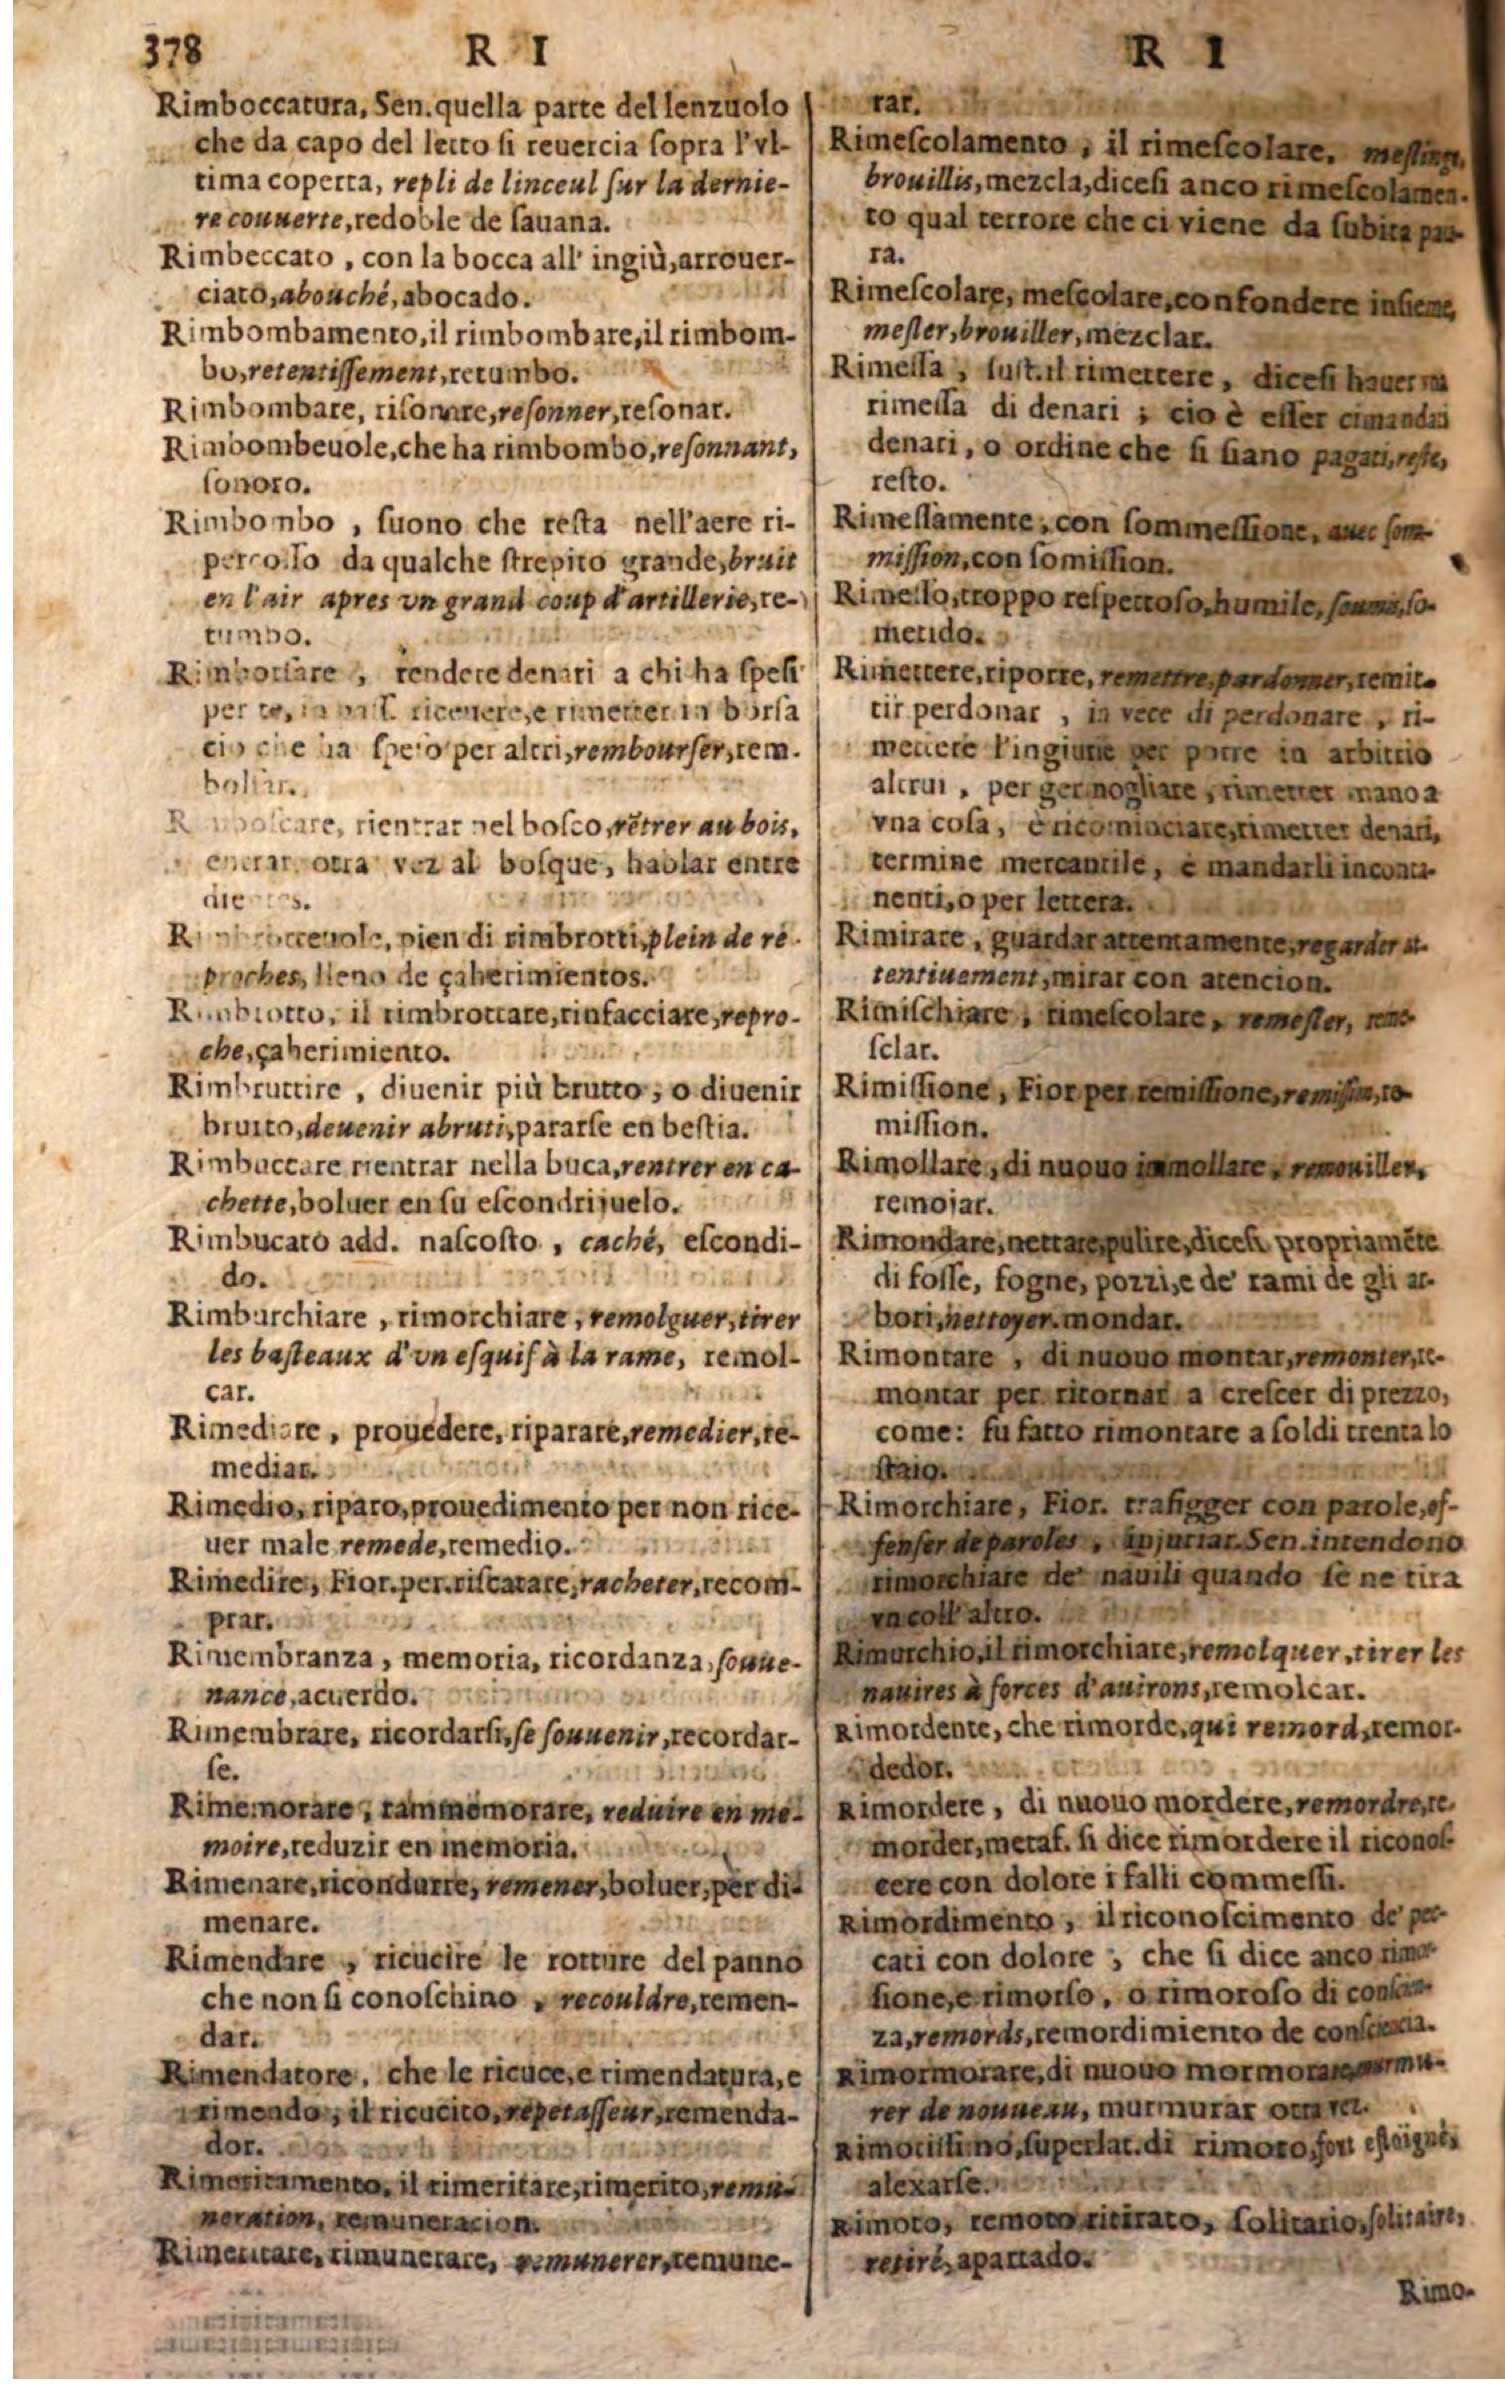 378 R I R I
Rimboccatura, Sen. quella parte del lenzuolo
che da capo del letto si reuercia sopra l'vl-
tima coperta, repli de linceul sur la dernie-
re couuerte, redoble de sauana.
Rimbeccato, con la bocca all' ingiù, arrouer-
ciato, abouché, abocado.
Rimbombamento, il rimbombare, il rimbom-
bo, retentissement, retumbo.
Rimbombare, risonare, resonner, resonar.
Rimbombeuole, che ha rimbombo, resonnant,
sonoro.
Rimbombo, suono che resta nell'aere ri-
percosso da qualche strepito grande, bruit
en l'air apres vn grand coup d'artillerie, re-
tumbo.
Rimborsare, rendere denari a chi ha spesi
per te, riceuere, e rimetter in borsa
cio che ha speso per altri, rembourser, rem-
bolsar.
Rimboscare, rientrar nel bosco, rẽtrer au bois,
entrar otra vez al bosque, hablar entre
dientes.
Rimbrotteuole, pien di rimbrotti, plein de re-
proches, lleno de çaherimientos.
Rimbrotto, il rimbrottare, rinfacciare, repro-
che, çaherimiento.
Rimbruttire, diuenir più brutto, o diuenir
bruito, deuenir abruti, pararse en bestia.
Rimbuccare rientrar nella buca, rentrer en ca-
chette, boluer en su escondrijuelo.
Rimbucato add. nascosto, caché, escondi-
do.
Rimburchiare, rimorchiare, remolguer, tirer
les basteaux d'vn esquif à la rame, remol-
car.
Rimediare, prouedere, riparare, remedier, re-
mediar.
Rimedio, riparo, prouedimento per non rice-
uer male remede, remedio.
Rimedire, Fior. per. riscatare, racheter, recom-
prar.
Rimembranza, memoria, ricordanza, souue-
nance, acuerdo.
Rimembrare, ricordarsi, se souuenir, recordar-
se.
Rimemorare, rammemorare, reduire en me-
moire, reduzir en memoria.
Rimenare, ricondurre, remener, boluer, per di-
menare.
Rimendare, ricucire le rotture del panno
che non si conoschino, recouldre, remen-
dar.
Rimendatore, che le ricuce, e rimendatura, e
rimendo, il ricucito, repetasseur, remenda-
dor.
Rimeritamento, il rimeritare, rimerito, remu-
neration, remuneracion.
Rimeritare, rimunerare, remunerer, remune-
rar.
Rimescolamento, il rimescolare,
brouillis, mezcla, dicesi anco rimescolamen-
to qual terrore che ci viene da subita pau-
ra.
Rimescolare, mescolare, confondere insieme,
mesler, brouiller, mezclar.
Rimessa, sust. il rimettere, dicesi hauer
rimessa di denari; cio è esser
denari, o ordine che si siano pagati, reste,
resto.
Rimessamente, con sommessione, auec som-
mission, con somission.
Rimesso, troppo respettoso, humile, soumis, so-
metido.
Rimettere, riporre, remettre, pardonner, remit-
tir perdonar, in vece di perdonare, ri-
mettere l'ingiurie per porre in arbitrio
altrui, per germogliare, rimetter mano a
vna cosa, è ricominciare, rimetter denari,
termine mercantile, è mandarli inconta-
nenti, o per lettera.
Rimirare, guardar attentamente, regarder at-
tentiuement, mirar con atencion.
Rimischiare, rimescolare, remesler, rme-
sclar.
Rimissione, Fior per remissione, remission, re-
mission.
Rimollare, di nuouo immollare, remouiller,
remojar.
Rimondare, nettare, pulire, dicesi propriamẽte
di fosse, fogne, pozzi, e de' rami de gli ar-
bori, nettoyer. mondar.
Rimontare, di nuouo montar, remonter, re-
montar per ritornar a crescer di prezzo,
come: fu fatto rimontare a soldi trenta lo
staio.
Rimorchiare, Fior. trafigger con parole, of-
fenser de paroles, injuriar. Sen. intendono
rimorchiare de' nauili quando se ne tira
vn coll' altro.
Rimorchio, il rimorchiare, remolquer, tirer les
nauires à forces d'auirons, remolcar.
Rimordente, che rimorde, qui remord, remor-
dedor.
Rimordere, di nuouo mordere, remordre, re-
morder, metaf. si dice rimordere il riconos-
cere con dolore i falli commessi.
Rimordimento, il riconoscimento de' pec-
cati con dolore, che si dice anco rimor-
sione, e rimorso, o rimoroso di conscien-
za, remords, remordimiento de consciencia.
Rimormorare, di nuouo mormorare, murmu-
rer de nouueau, murmurar otra vez.
Rimotissimo, superlat. di rimoto, fort esloigné,
alexarse.
Rimoto, remoto ritirato, solitario, solitaire,
retiré, apartado.
Rimo-